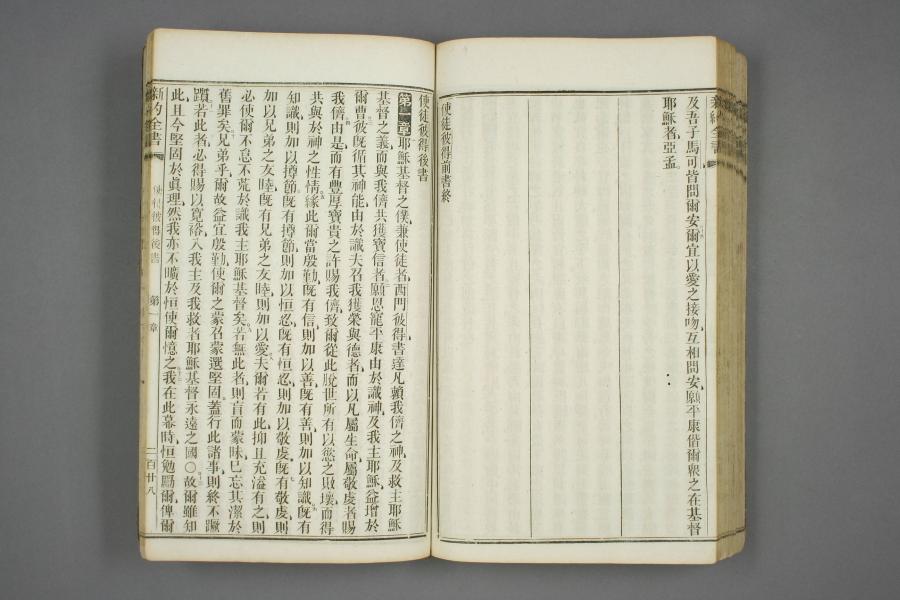 新約全書
及吾子馬可皆問爾安爾宜以愛之接吻互相問安願平康偕爾衆之在基督
耶穌者亞孟
使徒彼得前書終
使徒彼得後書
第一章耶穌基督之僕兼使徒者西門彼得書達凡賴我儕之神及救主耶穌
基督之義而與我儕共獲寶信者願恩寵平康由於識神及我主耶穌益增於
爾曹彼旣循其神能由於識夫召我獲榮與德者而以凡屬生命屬敬虔者賜
我儕由是而有豐厚寶貴之許賜我儕致爾從此脫世所有以慾之敗壞而得
共與於神之性情緣此爾當殷勤旣有信則加以善旣有善則加以知識旣有
知識則加以撙節旣有撙節則加以恒忍旣有恒忍則加以敬虔旣有敬虔則
加以兄弟之友睦旣有兄弟之友睦則加以愛夫爾若有此抑且充溢有之則
必使爾不怠不荒於識我主耶穌基督矣若無此者則盲而蒙昧已忘其潔於
舊罪矣兄弟乎爾故益宜殷勤使爾之蒙召蒙選堅固蓋行此諸事則終不蹶
躓若此者必得賜以寬裕入我主及我救者耶穌基督永遠之國○故爾雖知
此且今堅固於眞理然我亦不曠於恒使爾憶之我在此幕時恒勉勵爾俾爾
新約全書 使徒彼得後書 第一章 二百廿八